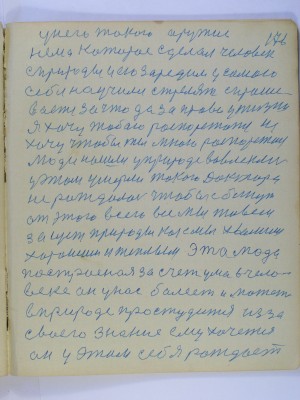 у него такого оружия 176
нема которое сделал человек
с природы и его зарядил у самого
себя научили стрелять спраши-
вается за что да за право и жизнь
Я хочу тобою распоряжаться не
хочу чтобы ты мною распоряжался
Люди нашли у природе
у этом умерли такого
не рождался чтобы сбегнуть
от этого всего все мы живем
за счет природы как мы хвалимся
хорошим и теплым Эта мода
построенная за счет ума в чело-
веке он у нас болеет и может
в природе простудится из за
своего знание ему хочется
он у этом себя рождает